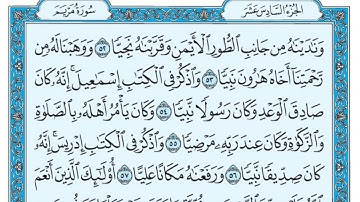 الجزء السادس عشر سورة مريم
وَنَٰدَيۡنَٰهُ مِن جَانِبِ ٱلطُّورِ ٱلۡأَيۡمَنِ وَقَرَّبۡنَٰهُ نَجِيّٗا ٥٢ وَوَهَبۡنَا لَهُۥ مِن
رَّحۡمَتِنَآ أَخَاهُ هَٰرُونَ نَبِيّٗا ٥٣ وَٱذۡكُرۡ فِي ٱلۡكِتَٰبِ إِسۡمَٰعِيلَۚ إِنَّهُۥ كَانَ
صَادِقَ ٱلۡوَعۡدِ وَكَانَ رَسُولٗا نَّبِيّٗا ٥٤ وَكَانَ يَأۡمُرُ أَهۡلَهُۥ بِٱلصَّلَوٰةِ
وَٱلزَّكَوٰةِ وَكَانَ عِندَ رَبِّهِۦ مَرۡضِيّٗا ٥٥ وَٱذۡكُرۡ فِي ٱلۡكِتَٰبِ إِدۡرِيسَۚ إِنَّهُۥ
كَانَ صِدِّيقٗا نَّبِيّٗا ٥٦ وَرَفَعۡنَٰهُ مَكَانًا عَلِيًّا ٥٧ أُوْلَٰٓئِكَ ٱلَّذِينَ أَنۡعَمَ